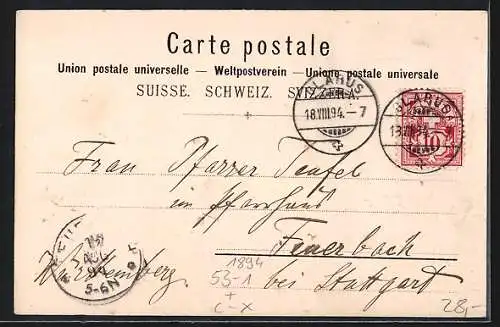 Carte postale
Union postale universelle — Weltpostverein — Unione postale universale
SUISSE. SCHWEIZ. SVIZZERA.
GLARUS
18.VIII.94.-7
GLARUS
18.VIII.94.
10
Frau Pfarrer Teufel
im Pfarrhaus
Feuerbach
bei Stuttgart
Württemberg.
AUG
5-6N
1894
53-1
+
C-X
28,-